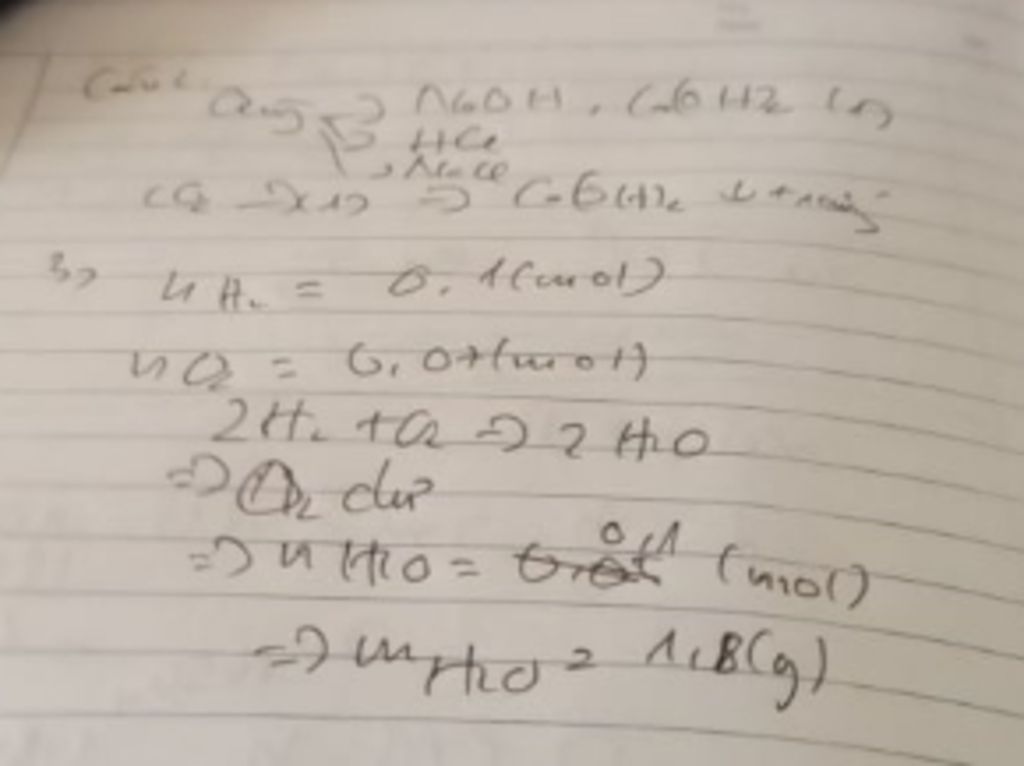 Câu 2
NaOH, Ca(OH)2
HCl
NaCl
CO2 => Ca(OH)2 ↓ +
3, nH2 = 0,1(mol)
nO2 = 0,07(mol)
2H2 + O2 => 2H2O
=> O2 dư
=> nH2O = 0,1 (mol)
=> mH2O = 1,8(g)